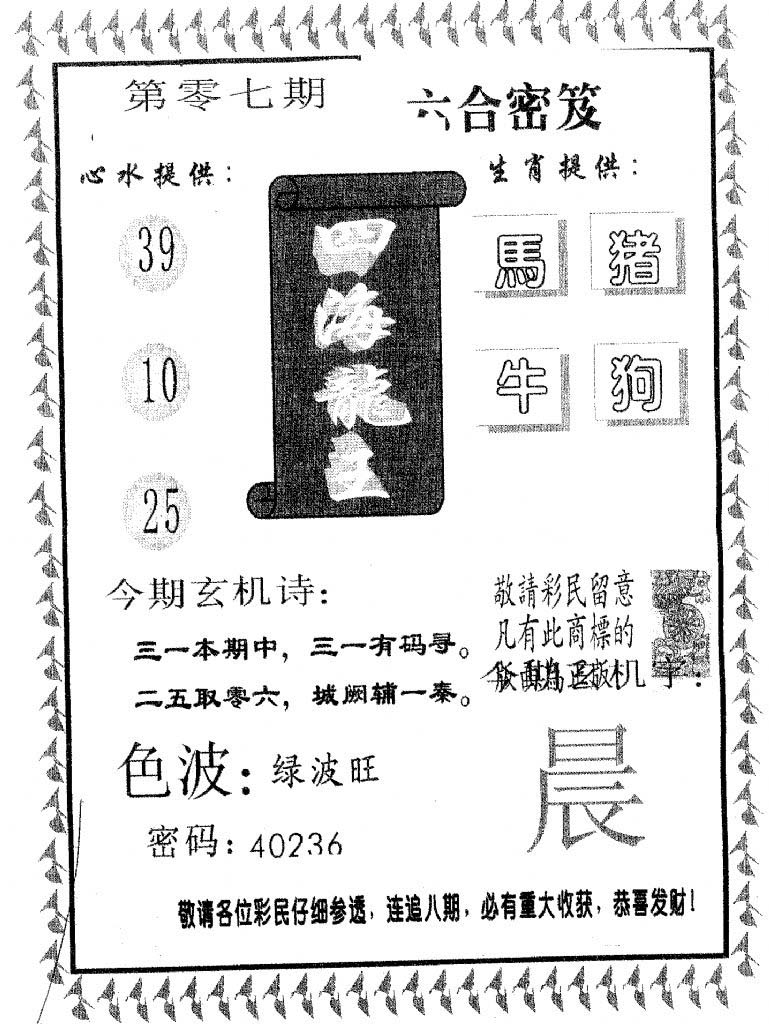 第零七期
六合密笈
心水提供：
生肖提供：
39
10
25
四海龍王
馬 猪
牛 狗
今期玄机诗：
三一本期中，三一有码寻。
二五取零六，城阙辅一秦。
敬請彩民留意
凡有此商標的
版面為正版
机字：
晨
色波：绿波旺
密码：40236
敬请各位彩民仔细参透，连追八期，必有重大收获，恭喜发财！